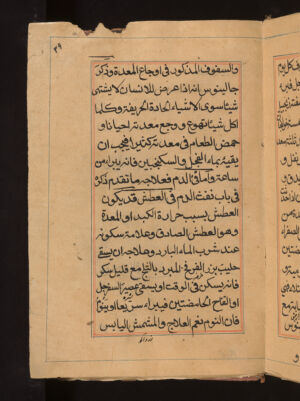 ٣٩
والسفوف المذكور فى اوجاع المعدة وذكر
جالينوس انه اذا عرض للانسان لا يشتهى
شيئا سوى الاشياء الحادة الحريفة وكلما
اكل شيئا تهوع و وجع معدته احيانا و
حمض الطعام فى معدته كثيرا فيجب ان
يقيئه بماء الفجل والسكنجبين فانه يبرا من
ساعته واما قئ الدم فعلاجه ما تقدم ذكره
فى باب نفث الدم فى العطش قد يكون
العطش بسبب حرارة الكبد او المعدة
وهو العطش الصادق وعلامته سكونه
عند شرب الماء البارد وعلاجه ان يسقى
حليب بزر القرع المبرد بالثلج مع قليل سكر
فانه يسكن فى الوقت او يسقى عصير السفرجل
او التفاح الحامضتين فيبراء سريعا او ينوم
فان النوم نعم العلاج والمشمش اليابس